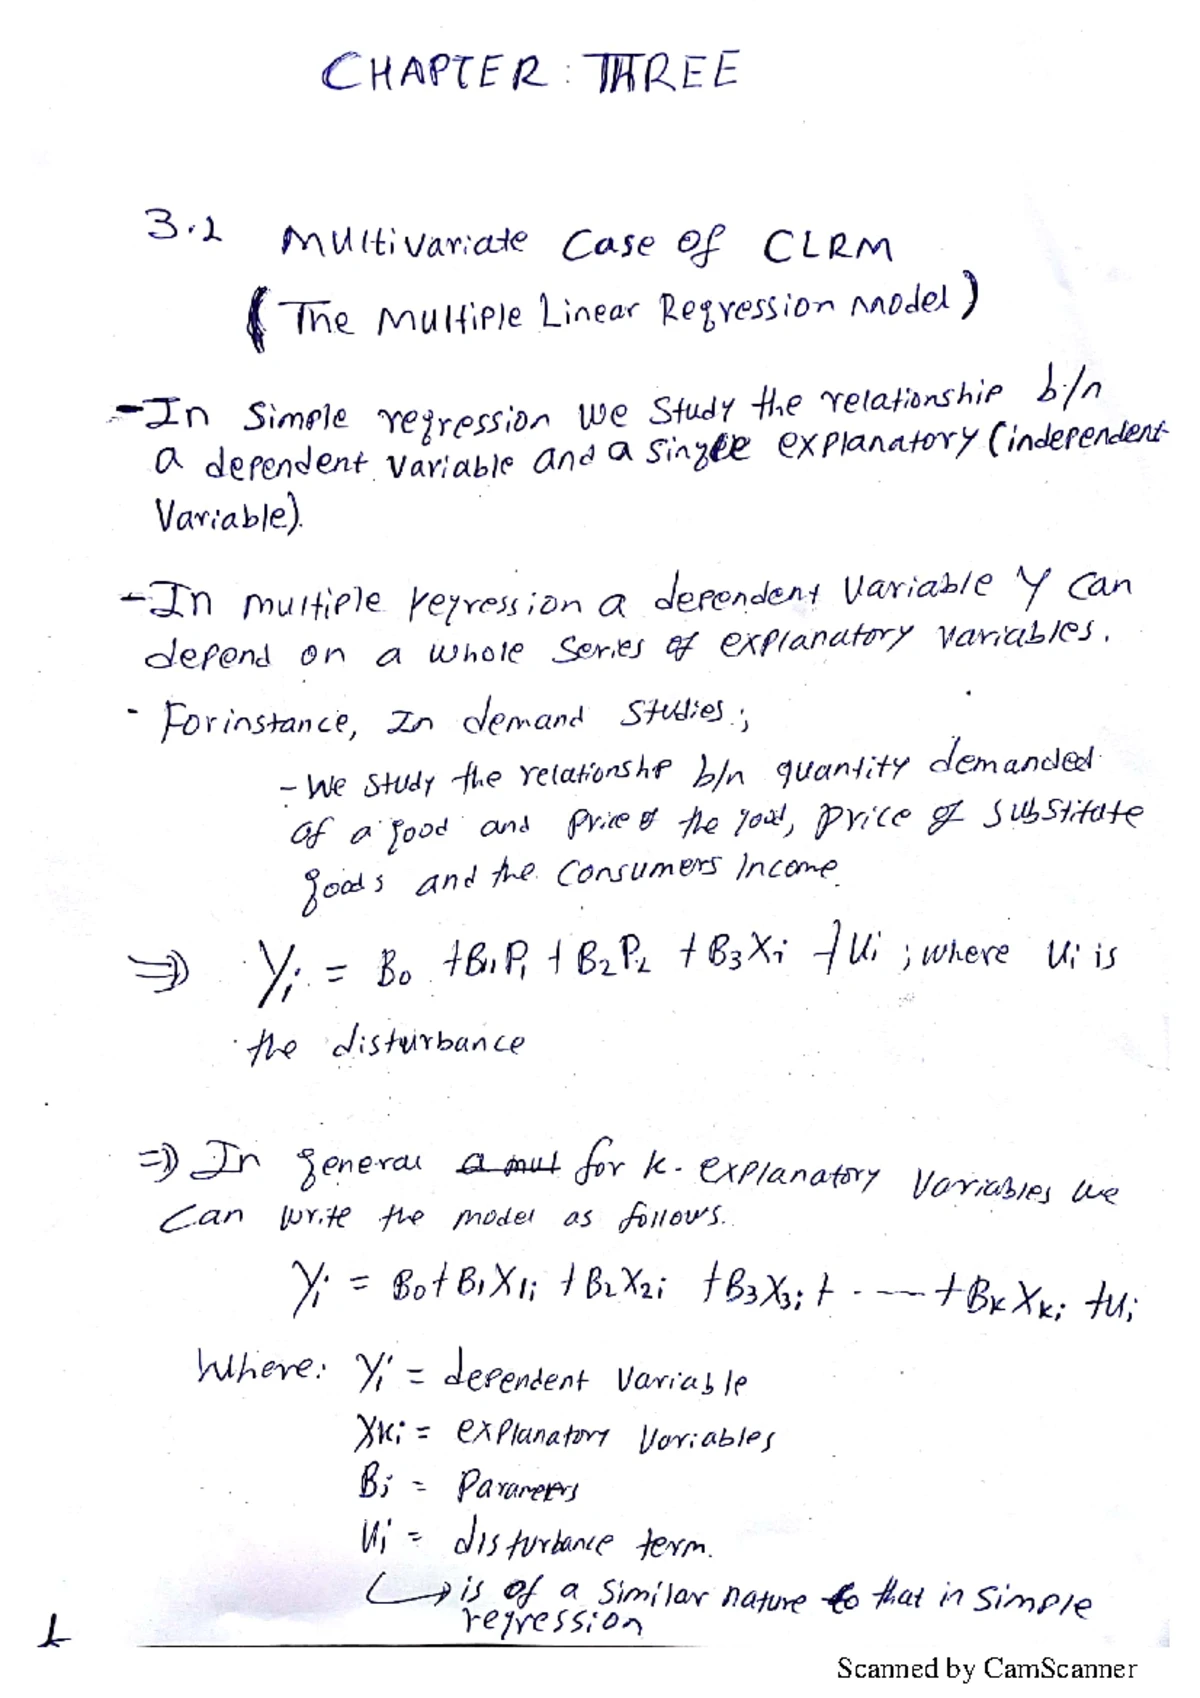 CHAPTER: THREE
3.2 Multivariate Case of CLRM
(The Multiple Linear Regression Model)
- In Simple regression we study the relationship b/n
a dependent variable and a single explanatory (independent
Variable).
- In multiple regression a dependent variable Y can
depend on a whole series of explanatory variables.
- For instance, In demand studies;
- We study the relationship b/n quantity demanded
of a good and price of the good, price of substitute
goods and the consumers income.
⇒ Yi = B0 + B1P1 + B2P2 + B3Xi + Ui ; where Ui is
the disturbance
⇒ In general a mul for k-explanatory variables we
can write the model as follows.
Yi = B0 + B1X1i + B2X2i + B3X3i + ---- + BkXki + Ui
Where: Yi = dependent variable
Xki = explanatory variables
Bi = Parameters
Ui = disturbance term.
↳ is of a similar nature to that in simple
regression
1
Scanned by CamScanner